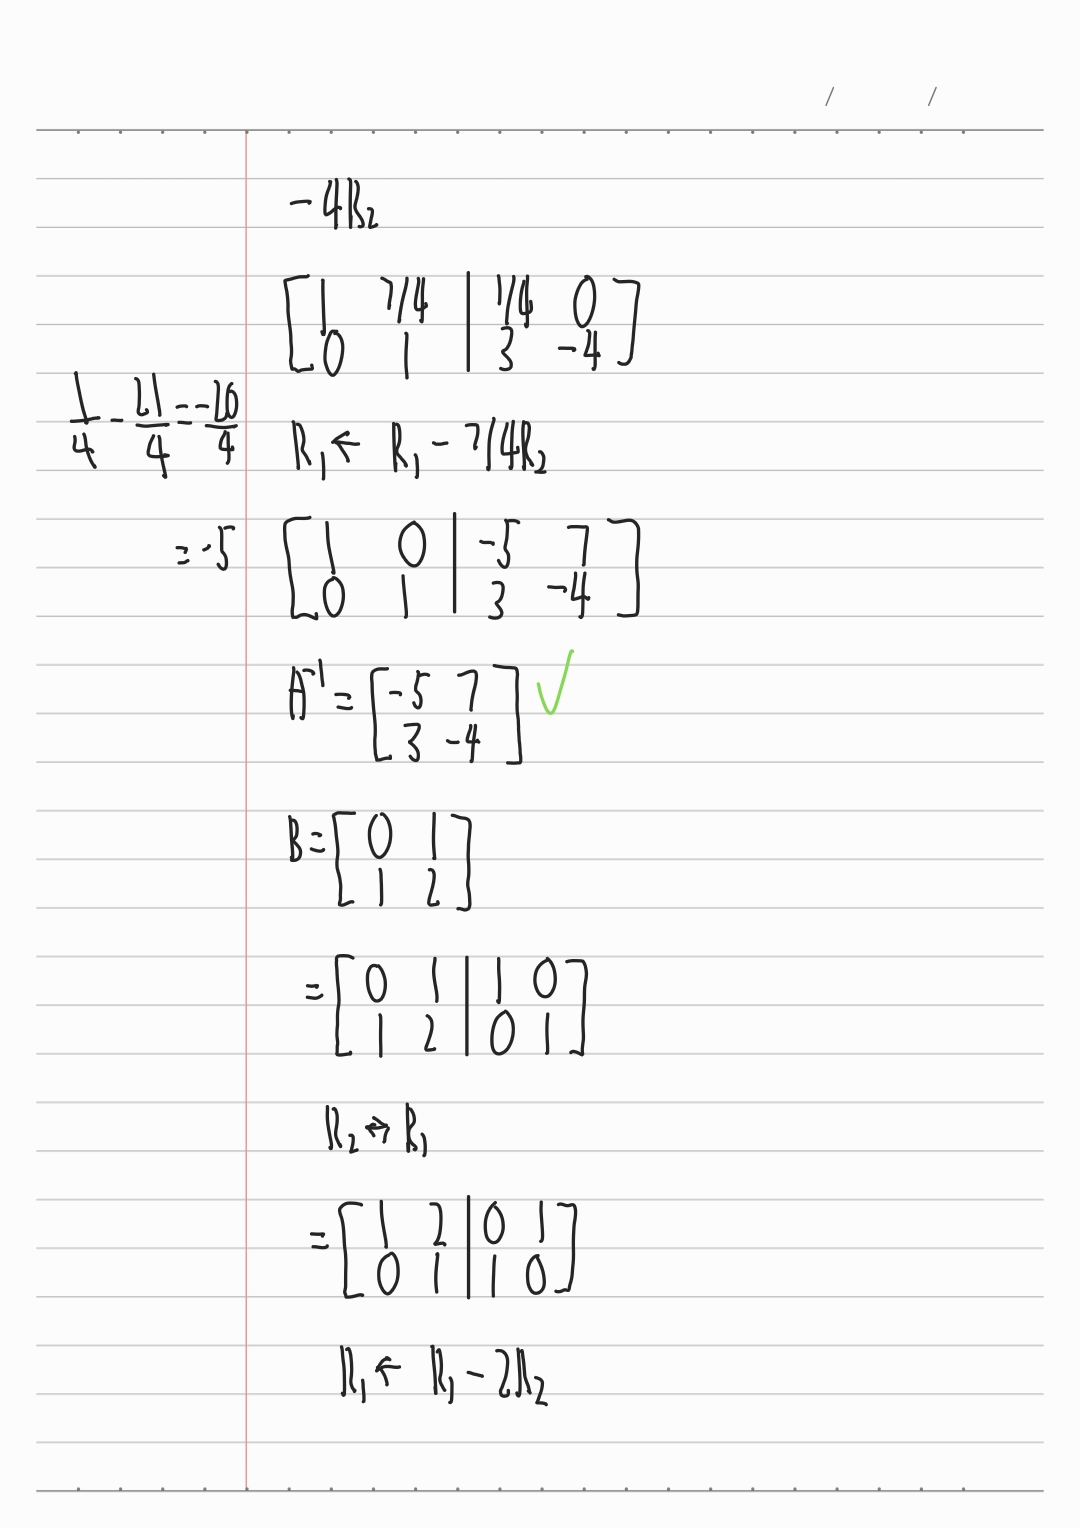 / /
-4R₂
[ 1 7/4 | 1/4 0 ]
[ 0 1 | 3 -4 ]
1/4 - 21/4 = -20/4
R₁ ← R₁ - 7/4R₂
= -5
[ 1 0 | -5 7 ]
[ 0 1 | 3 -4 ]
A⁻¹ = [ -5 7 ] ✓
[ 3 -4 ]
B = [ 0 1 ]
[ 1 2 ]
= [ 0 1 | 1 0 ]
[ 1 2 | 0 1 ]
R₂ ↔ R₁
= [ 1 2 | 0 1 ]
[ 0 1 | 1 0 ]
R₁ ← R₁ - 2R₂